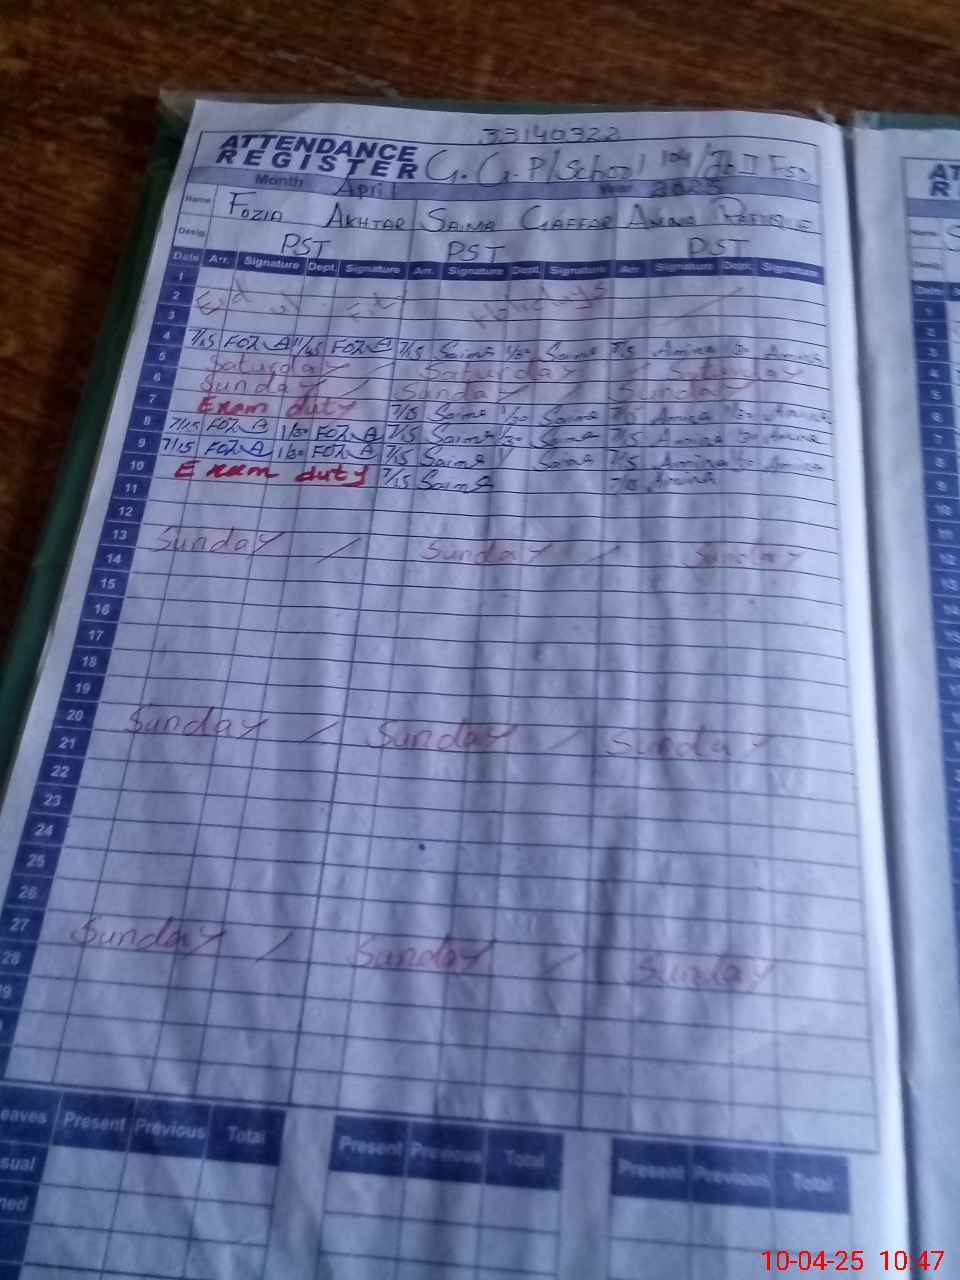 33140322
ATTENDANCE REGISTER G.G.P/School 104/Jb II FSD
Month April Year 2025
Name FOZIA AKHTAR SAIMA GAFFAR AMINA RAFIQUE
Desig PST PST PST
Date Arr. Signature Dept. Signature Arr. Signature Dept. Signature Arr Signature Dept. Signature
1
2 Eid ul Fit Holidays
3
4 7/15 FOZIA 11/45 FOZIA 7/15 Saima Saima 7/15 Amina Amina
5 Saturday / Saturday / Saturday
6 Sunday / Sunday / Sunday
7 Exam duty 7/15 Saima 1/30 Saima 7/15 Amina 1/30 Amina
8 7/15 FOZIA 1/30 FOZIA 7/15 Saima 1/30 Saima 7/15 Amina 1/30 Amina
9 7/15 FOZIA 1/30 FOZIA 7/15 Saima Saima 7/15 Amina 1/30 Amina
10 Exam duty 7/15 Saima 7/15 Amina
11
12
13 Sunday / Sunday / Sunday
14
15
16
17
18
19
20 Sunday / Sunday / Sunday
21
22
23
24
25
26
27 Sunday / Sunday / Sunday
28
9
eaves Present Previous Total Present Previous Total Present Previous Total
sual
ned
AT
R
Name S
Desig
Date
10-04-25 10:47